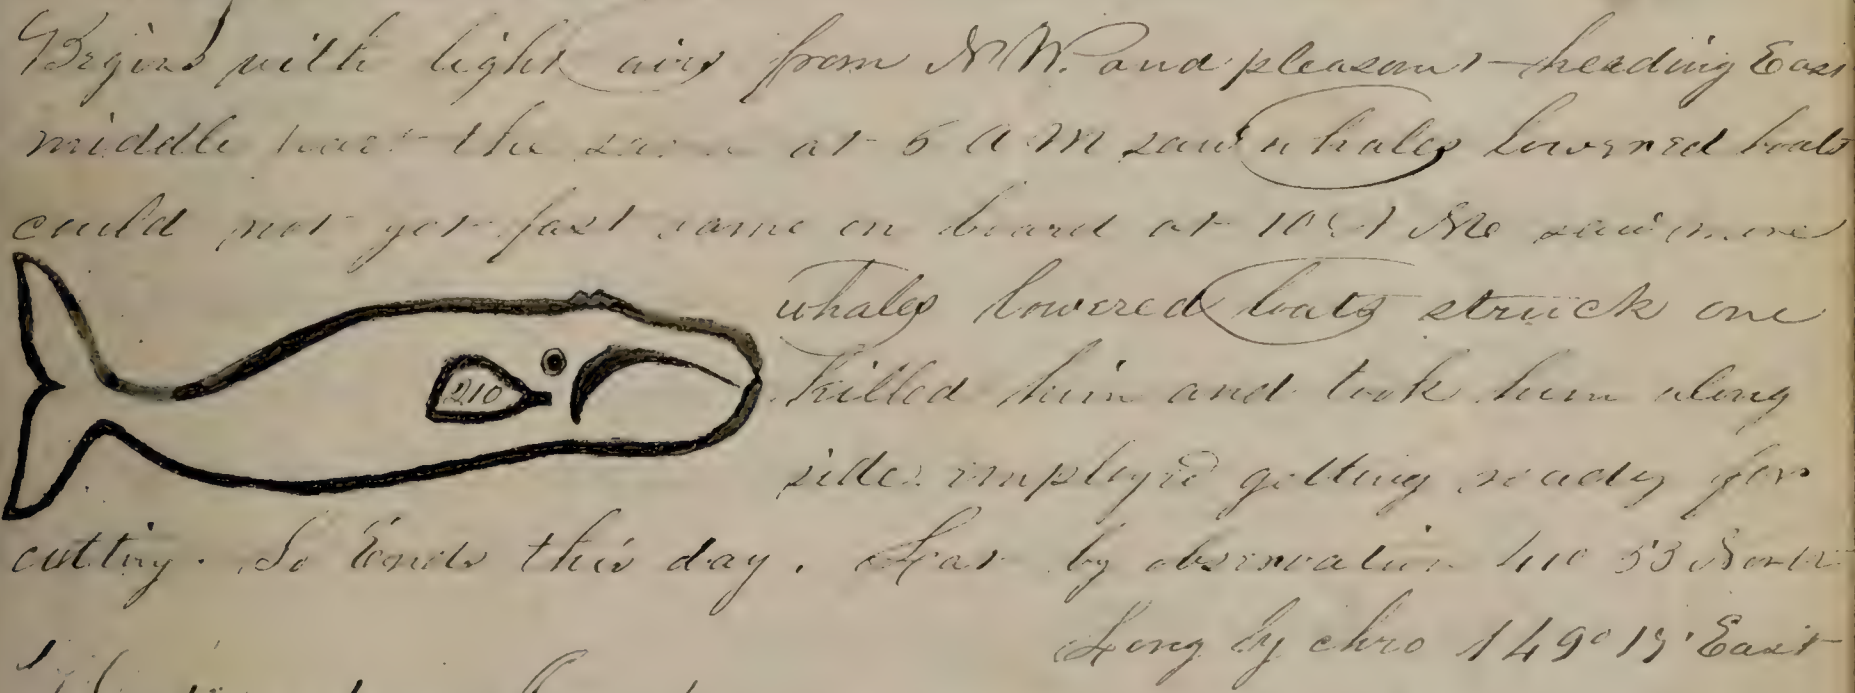 Begins with light airs from N W. and pleasant heading East
middle part the same at 5 A M saw whales lowered boats
could not get fast came on board at 10 A M saw more
whales lowered boats struck one
210
killed him and took him along
side. employed getting ready for
cutting. So Ends this day. Lat by observation 53 North
Long by chro 149° 19' East